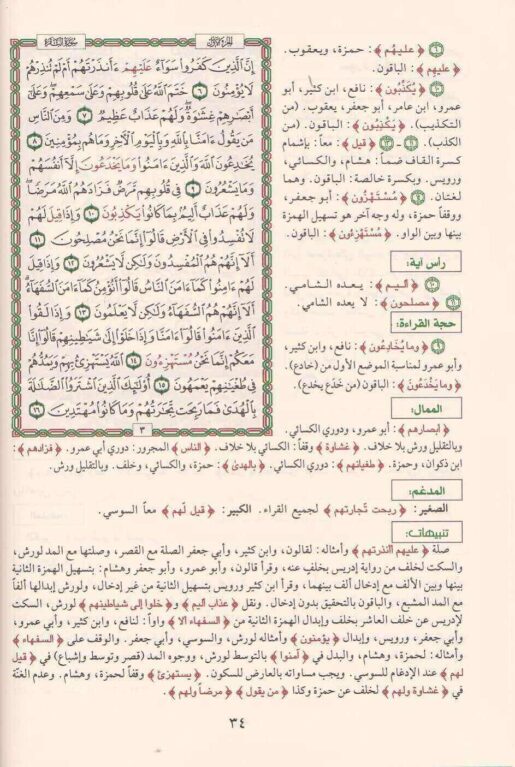 الجزء الأول
سورة البقرة
إِنَّ الَّذِينَ كَفَرُوا سَوَاءٌ عَلَيْهِمْ ءَأَنذَرْتَهُمْ أَمْ لَمْ تُنذِرْهُمْ
لَا يُؤْمِنُونَ ٦ خَتَمَ اللَّهُ عَلَىٰ قُلُوبِهِمْ وَعَلَىٰ سَمْعِهِمْ وَعَلَىٰ
أَبْصَٰرِهِمْ غِشَٰوَةٌ وَلَهُمْ عَذَابٌ عَظِيمٌ ٧ وَمِنَ النَّاسِ
مَن يَقُولُ ءَامَنَّا بِاللَّهِ وَبِالْيَوْمِ الْآخِرِ وَمَا هُم بِمُؤْمِنِينَ ٨
يُخَٰدِعُونَ اللَّهَ وَالَّذِينَ ءَامَنُوا وَمَا يَخْدَعُونَ إِلَّا أَنفُسَهُمْ
وَمَا يَشْعُرُونَ ٩ فِي قُلُوبِهِم مَّرَضٌ فَزَادَهُمُ اللَّهُ مَرَضًا
وَلَهُمْ عَذَابٌ أَلِيمٌ بِمَا كَانُوا يَكْذِبُونَ ١٠ وَإِذَا قِيلَ لَهُمْ
لَا تُفْسِدُوا فِي الْأَرْضِ قَالُوا إِنَّمَا نَحْنُ مُصْلِحُونَ ١١
أَلَا إِنَّهُمْ هُمُ الْمُفْسِدُونَ وَلَٰكِن لَّا يَشْعُرُونَ ١٢ وَإِذَا قِيلَ
لَهُمْ ءَامِنُوا كَمَا ءَامَنَ النَّاسُ قَالُوا أَنُؤْمِنُ كَمَا ءَامَنَ السُّفَهَاءُ
أَلَا إِنَّهُمْ هُمُ السُّفَهَاءُ وَلَٰكِن لَّا يَعْلَمُونَ ١٣ وَإِذَا لَقُوا
الَّذِينَ ءَامَنُوا قَالُوا ءَامَنَّا وَإِذَا خَلَوْا إِلَىٰ شَيَٰطِينِهِمْ قَالُوا إِنَّا
مَعَكُمْ إِنَّمَا نَحْنُ مُسْتَهْزِءُونَ ١٤ اللَّهُ يَسْتَهْزِئُ بِهِمْ وَيَمُدُّهُمْ
فِي طُغْيَٰنِهِمْ يَعْمَهُونَ ١٥ أُولَٰئِكَ الَّذِينَ اشْتَرَوُا الضَّلَٰلَةَ
بِالْهُدَىٰ فَمَا رَبِحَت تِّجَٰرَتُهُمْ وَمَا كَانُوا مُهْتَدِينَ ١٦
٣
﴿عليهم﴾ : حمزة، ويعقوب.
﴿عليهم﴾ : الباقون.
﴿يُكَذِّبُون﴾ : نافع، ابن كثير، أبو
عمرو، ابن عامر، أبو جعفر، يعقوب. (من
التكذيب). ﴿يَكْذِبُون﴾ : الباقون. (من
الكذب). ﴿قيل﴾ : معاً: بإشمام
كسرة القاف ضماً: هشام، والكسائي،
ورويس. وبكسرة خالصة: الباقون. وهما
لغتان. ﴿مُسْتَهْزُون﴾ : أبو جعفر،
ووقفاً حمزة، وله وجه آخر هو تسهيل الهمزة
بينها وبين الواو. ﴿مُسْتَهْزِءُون﴾ : الباقون.
رأس آية:
﴿أليم﴾ : يعده الشامي.
﴿مصلحون﴾ : لا يعده الشامي.
حجة القراءة:
﴿وما يُخَادِعُون﴾ : نافع، وابن كثير،
وأبو عمرو لمناسبة الموضع الأول من (خادع).
﴿وما يَخْدَعُون﴾ : الباقون (من خَدَع يخدع).
الممال:
﴿أبصارهم﴾ : أبو عمرو، ودوري الكسائي.
وبالتقليل ورش بلا خلاف. ﴿غشاوة﴾ وقفاً: الكسائي بلا خلاف. ﴿الناس﴾ المجرور: دوري أبي عمرو. ﴿فزادهم﴾ :
ابن ذكوان، وحمزة. ﴿طغيانهم﴾ : دوري الكسائي. ﴿بالهدى﴾ : حمزة، والكسائي، وخلف. وبالتقليل ورش.
المدغم:
الصغير: ﴿ربحت تجارتهم﴾ لجميع القراء. الكبير: ﴿قيل لهم﴾ معاً السوسي.
تنبيهات:
صلة ﴿عليهم أأنذرتهم﴾ وأمثاله: لقالون، وابن كثير، وأبي جعفر الصلة مع القصر، وصلتها مع المد لورش،
والسكت لخلف من رواية إدريس بخلف عنه، وقرأ قالون، وأبو عمرو، وأبو جعفر وهشام: بتسهيل الهمزة الثانية
بينها وبين الألف مع إدخال ألف بينهما، وقرأ ابن كثير ورويس بتسهيل الثانية من غير إدخال، ولورش إبدالها ألفاً
مع المد المشبع، والباقون بالتحقيق بدون إدخال. ونقل ﴿عذاب أليم﴾ و﴿خلوا إلى شياطينهم﴾ لورش، السكت
لإدريس عن خلف العاشر بخلف وإبدال الهمزة الثانية من ﴿السفهاء ألا﴾ واواً: لنافع، وابن كثير، وأبي عمرو،
وأبي جعفر، ورويس، وإبدال ﴿يؤمنون﴾ وأمثاله لورش، والسوسي، وأبي جعفر. والوقف على ﴿السفهاء﴾
وأمثاله: لحمزة، وهشام، والبدل في ﴿آمنوا﴾ بالتوسط لورش، ووجوه المد (قصر وتوسط وإشباع) في ﴿قيل
لهم﴾ عند الإدغام للسوسي. ويجب مساواته بالعارض للسكون. ﴿يستهزئ﴾ وقفاً لحمزة، وهشام. وعدم الغنّة
في ﴿غشاوة ولهم﴾ لخلف عن حمزة وكذا ﴿من يقول﴾ ﴿مرضاً ولهم﴾.
٣٤